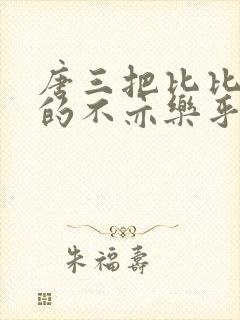 唐三把比比
的不亦樂乎
朱福壽